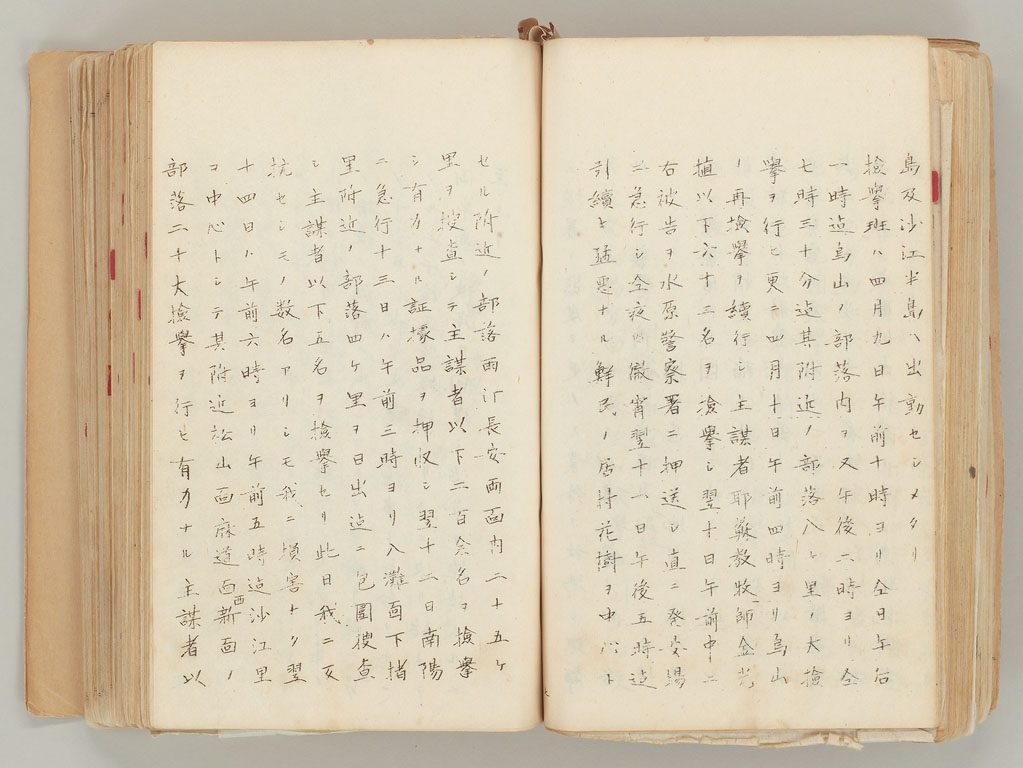 島及沙江半島ヘ出動セシメタリ
検挙班ハ四月九日午前十時ヨリ仝日午后
一時迠烏山ノ部落内ヲ又午後六時ヨリ仝
七時三十分迠其附近ノ部落八ヶ里ノ大検
挙ヲ行ヒ更ニ四月十日午前四時ヨリ烏山
ノ再検挙ヲ続行シ主謀者耶蘇教牧師金光
植以下六十二名ヲ検挙シ翌十日午前中ニ
右被告ヲ水原警察署ニ押送シ直ニ発安場
ニ急行シ仝夜ハ徹宵翌十一日午後五時迠
引續キ猛悪ナル鮮民ノ居村花樹ヲ中心ト
セル附近ノ部落雨汀長安両面内二十五ヶ
里ヲ捜査シテ主謀者以下二百余名ヲ検挙
シ有力ナル証據品ヲ押収シ翌十二日南陽
ニ急行十三日ハ午前三時ヨリ八灘面下楮
里附近ノ部落四ヶ里ヲ日出迠ニ包囲捜査
シ主謀者以下五名ヲ検挙セリ此日我ニ反
抗セシモノ数名アリシモ我ニ損害ナク翌
十四日ハ午前六時ヨリ午前五時迠沙江里
ヲ中心トシテ其附近松山面麻道面西新面ノ
部落二十大検挙ヲ行ヒ有力ナル主謀者以